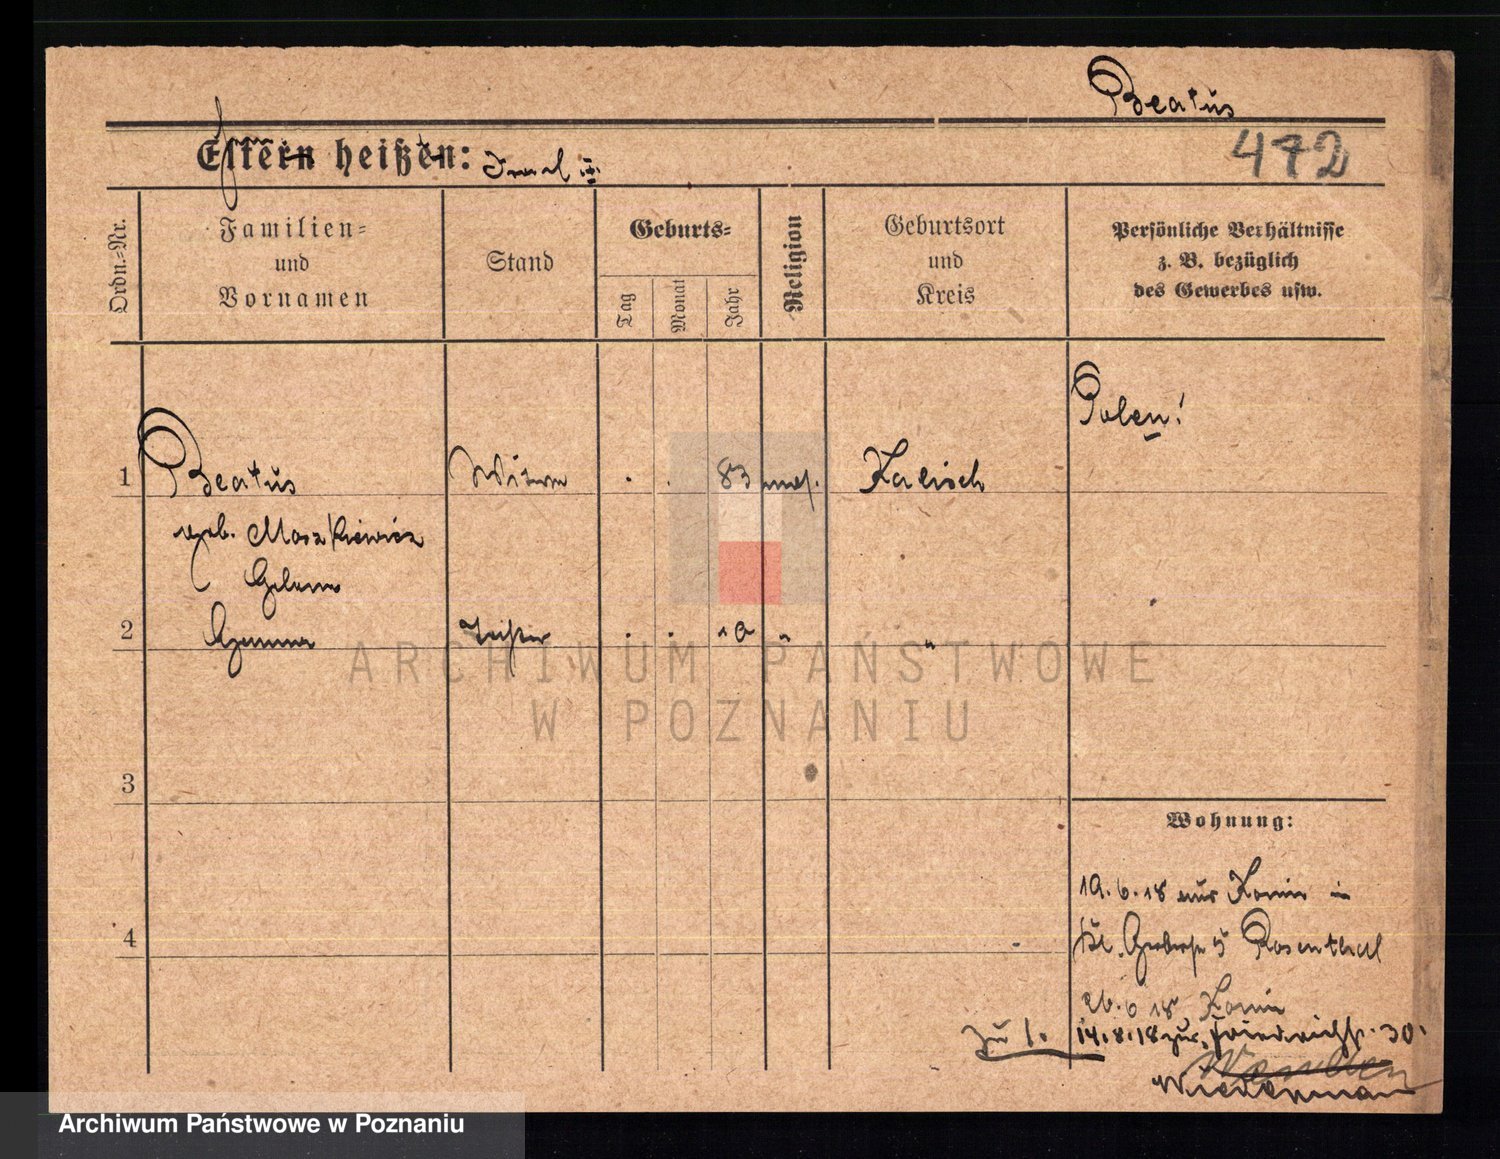 Beatus
472
Eltern heißen:
Ordn.-Nr.
Familien-
und
Vornamen
Stand
Geburts-
Tag
Monat
Jahr
Religion
Geburtsort
und
Kreis
Persönliche Verhältnisse
z. B. bezüglich
des Gewerbes usw.
Polen!
1 Beatus Witwe 83 mos. Kalisch
geb. Moszkiewicz
2 Tochter 10 " "
3
Wohnung:
4
19.6.18 aus Konin in
Kl. Gerberstr 5 Rosenthal
26.6 18 Konin
zu 1. 14.8.18 zur. Friedrichstr. 30.
Wiedermann
ARCHIWUM PAŃSTWOWE
W POZNANIU
Archiwum Państwowe w Poznaniu